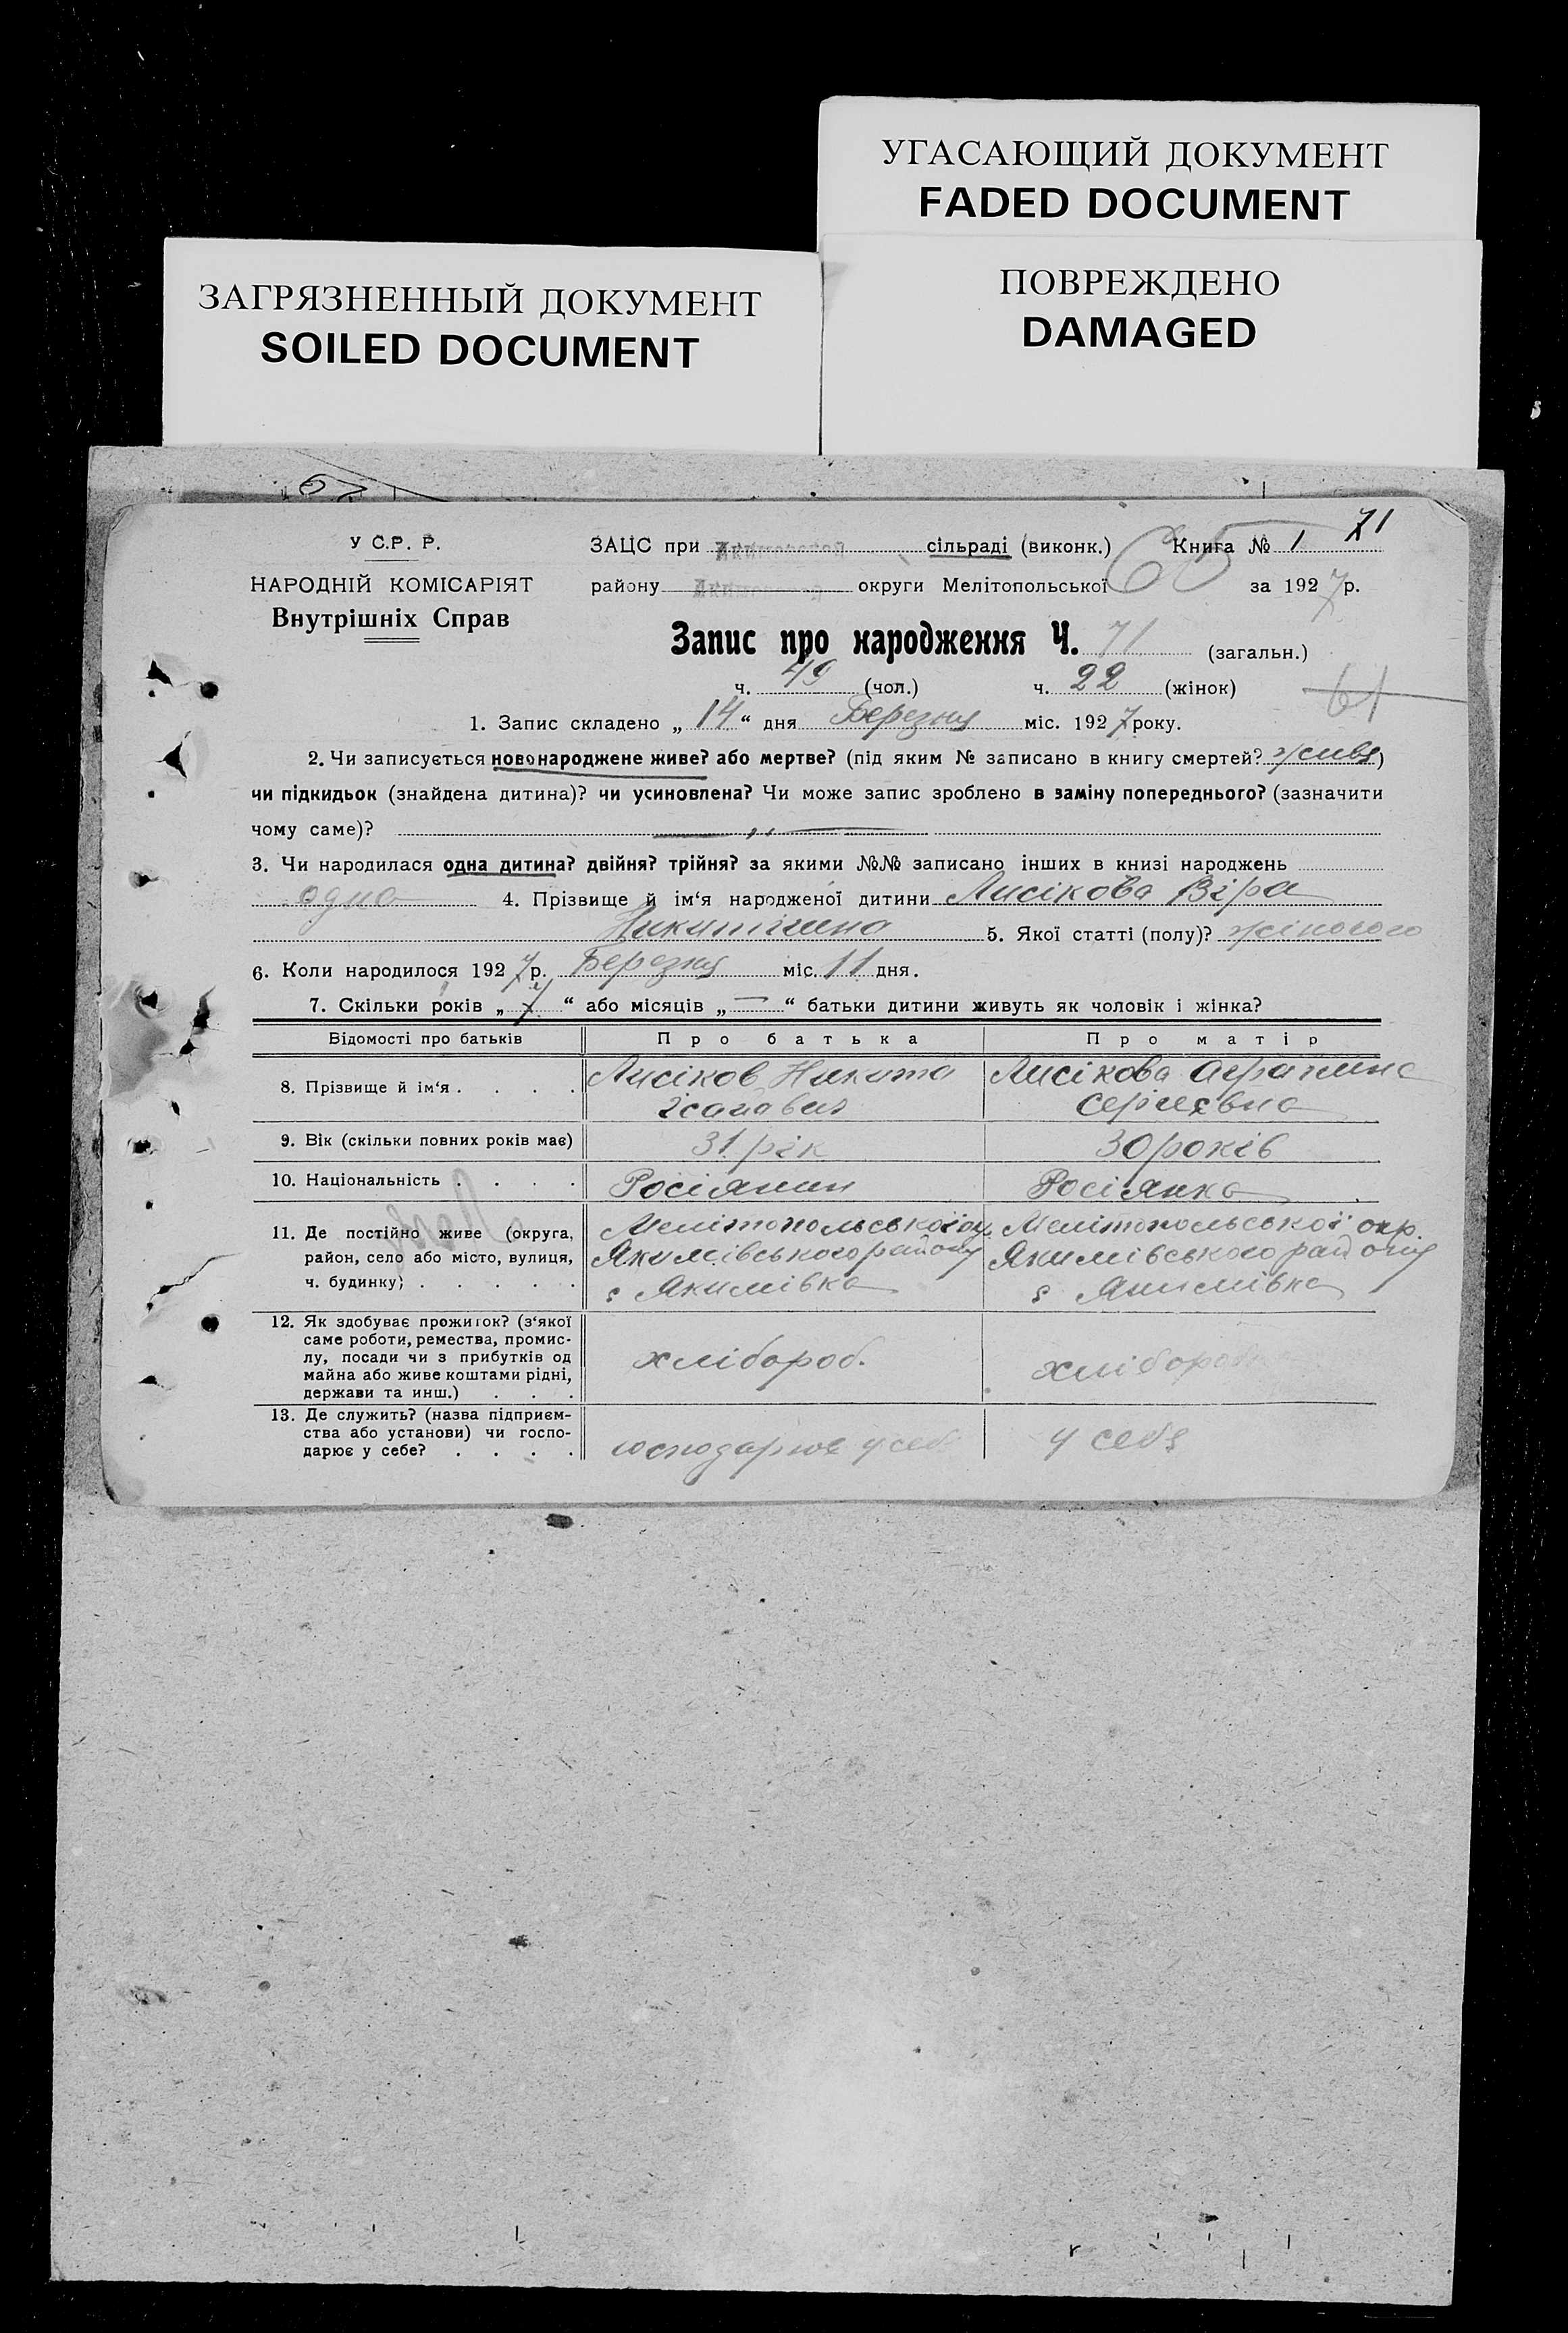 УГАСАЮЩИЙ ДОКУМЕНТ
FADED DOCUMENT
ЗАГРЯЗНЕННЫЙ ДОКУМЕНТ
SOILED DOCUMENT
ПОВРЕЖДЕНО
DAMAGED
71
У С.Р. Р.
НАРОДНІЙ КОМІСАРІЯТ
Внутрішніх Справ
ЗАЦС при сільраді (виконк.) Книга № 1
району округи Мелітопольської 65 за 1927 р.
Запис про народження Ч. 71 (загальн.)
ч. 49 (чол.) ч. 22 (жінок)
61
1. Запис складено „ 14 “ дня Березня міс. 1927 року.
2. Чи записується новонароджене живе? або мертве? (під яким № записано в книгу смертей? живе)
чи підкидьок (знайдена дитина)? чи усиновлена? Чи може запис зроблено в заміну попереднього? (зазначити
чому саме)?
3. Чи народилася одна дитина? двійня? трійня? за якими №№ записано інших в книзі народжень
одна 4. Прізвище й ім‘я народженої дитини Лисікова Віра
Никитічна 5. Якої статті (полу)? жіночого
6. Коли народилося 1927 р. Березня міс. 11 дня.
7. Скільки років „ “ або місяців „ — “ батьки дитини живуть як чоловік і жінка?
Відомості про батьків Про батька Про матір
8. Прізвище й ім‘я . . . . Лисіков Никита Лисікова
Сергиєвна
9. Вік (скільки повних років має) 31 рік 30 років
10. Національність . . . . Росіянин Росіянка
11. Де постійно живе (округа, Мелітопольської ок. Мелітопольської окр.
район, село або місто, вулиця, Якимівського району Якимівського району
ч. будинку) . . . . . с Якимівка с Якимівка
12. Як здобуває прожиток? (з‘якої
саме роботи, ремества, промис-
лу, посади чи з прибутків од хлібороб. хлібороб
майна або живе коштами рідні,
держави та инш.) . . .
13. Де служить? (назва підприєм-
ства або установи) чи госпо-
дарює у себе? . . . . господарює у себе у себе